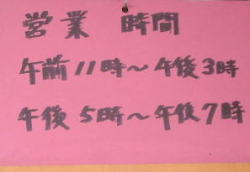 営業 時間
午前11時～午後3時
午後5時～午後7時